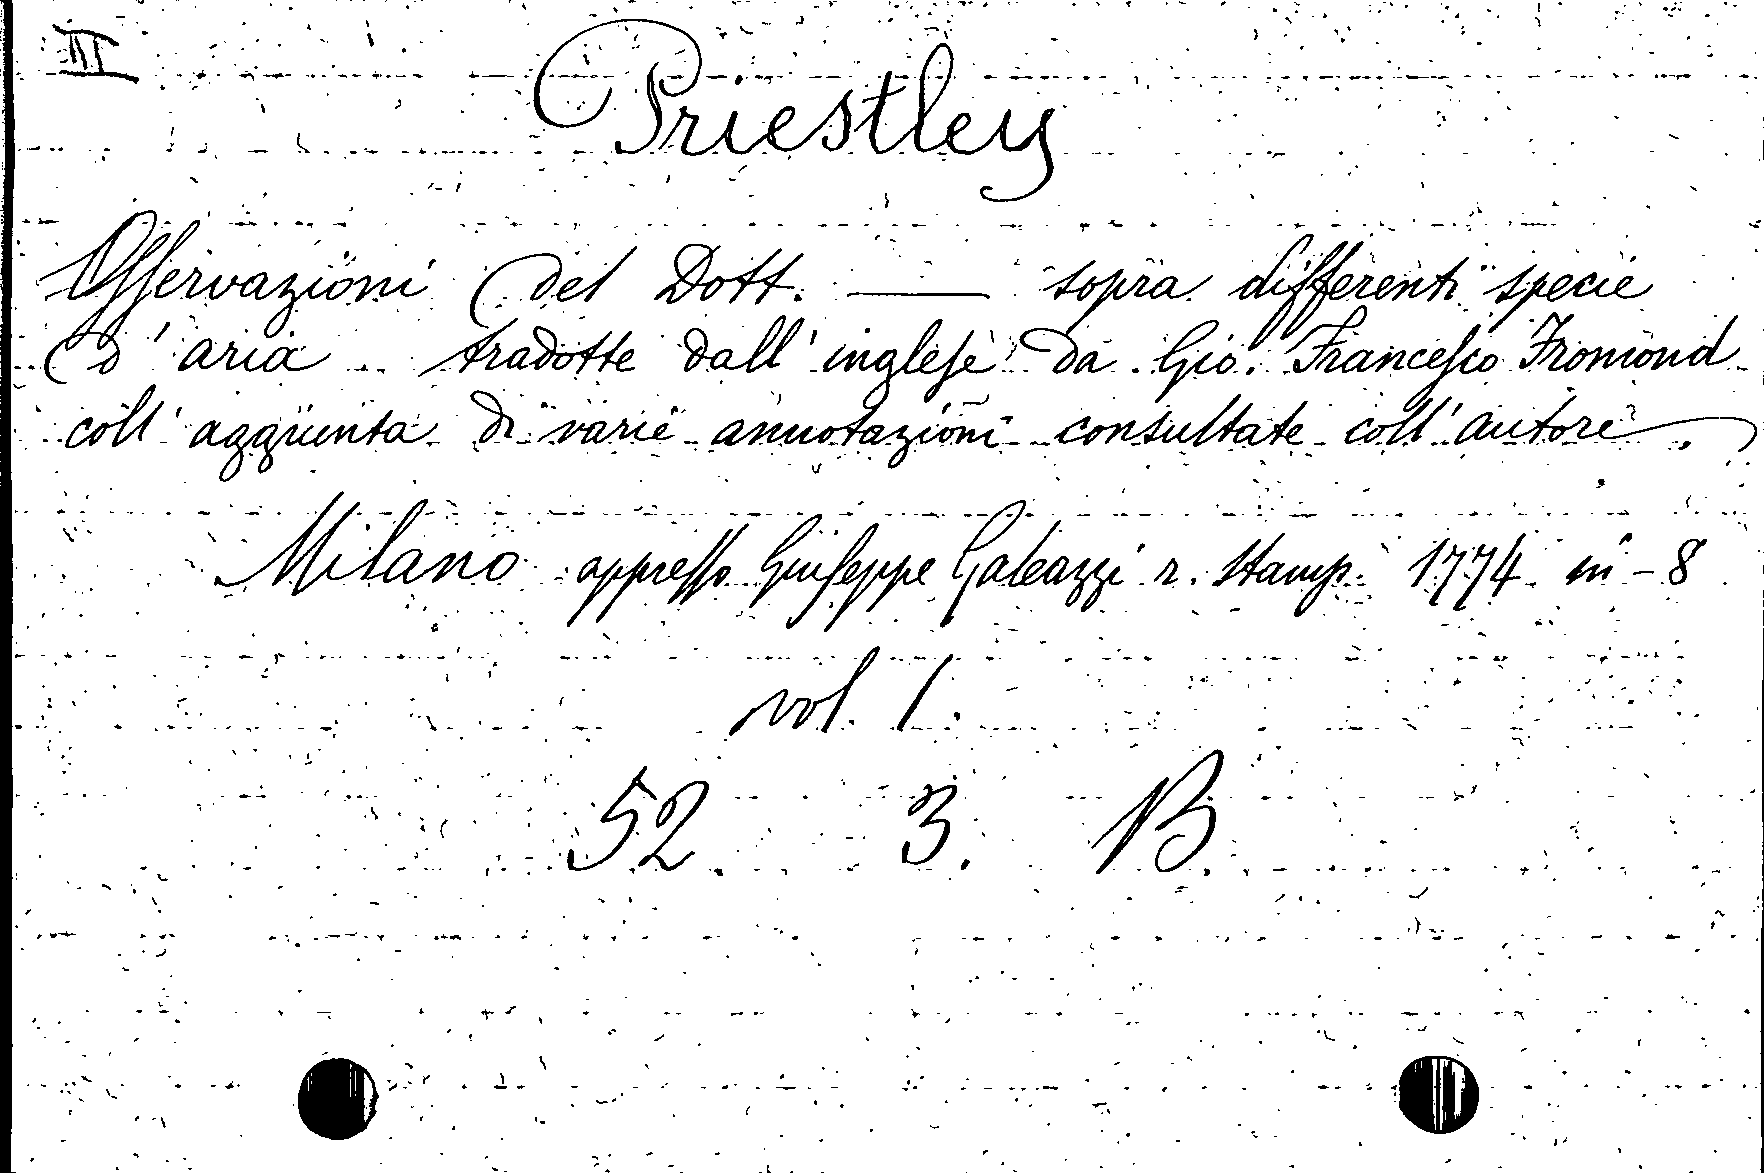 III
Priestley
Osservazioni del Dott. —— sopra differenti specie
d'aria tradotte dall'inglese da Gio. Francesco Fromond
coll'aggiunta di varie annotazioni consultate coll'autore.
Milano appresso Giuseppe Galeazzi r. stamp. 1774 in-8
vol. 1.
52. 3. B.